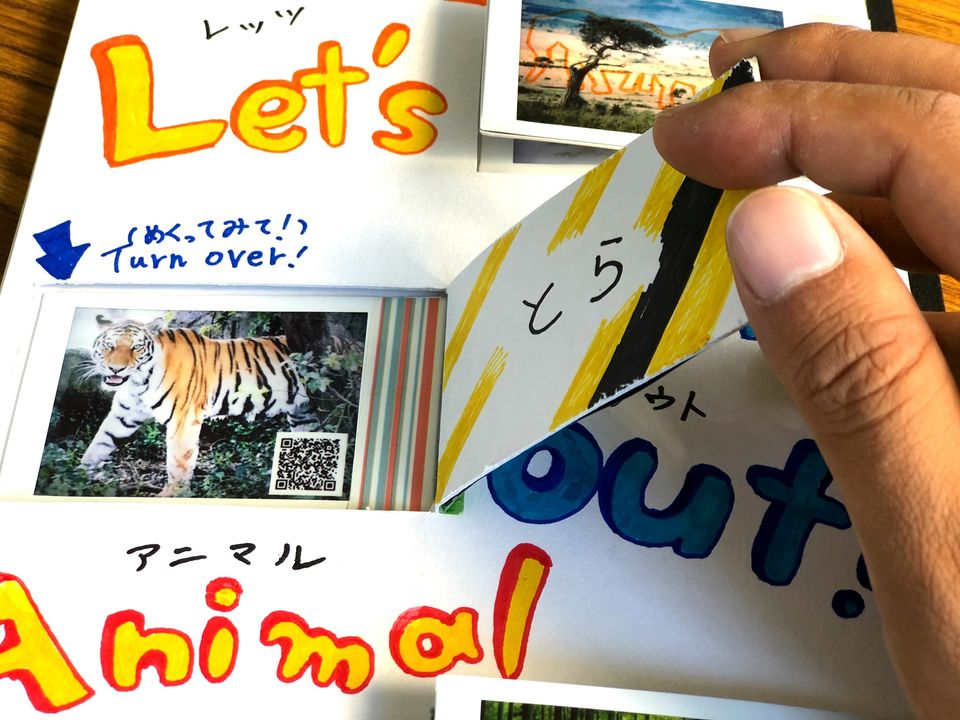 レッツ
Let's
(めくってみて!)
Turn over!
とら
ウト
out!
アニマル
Animal